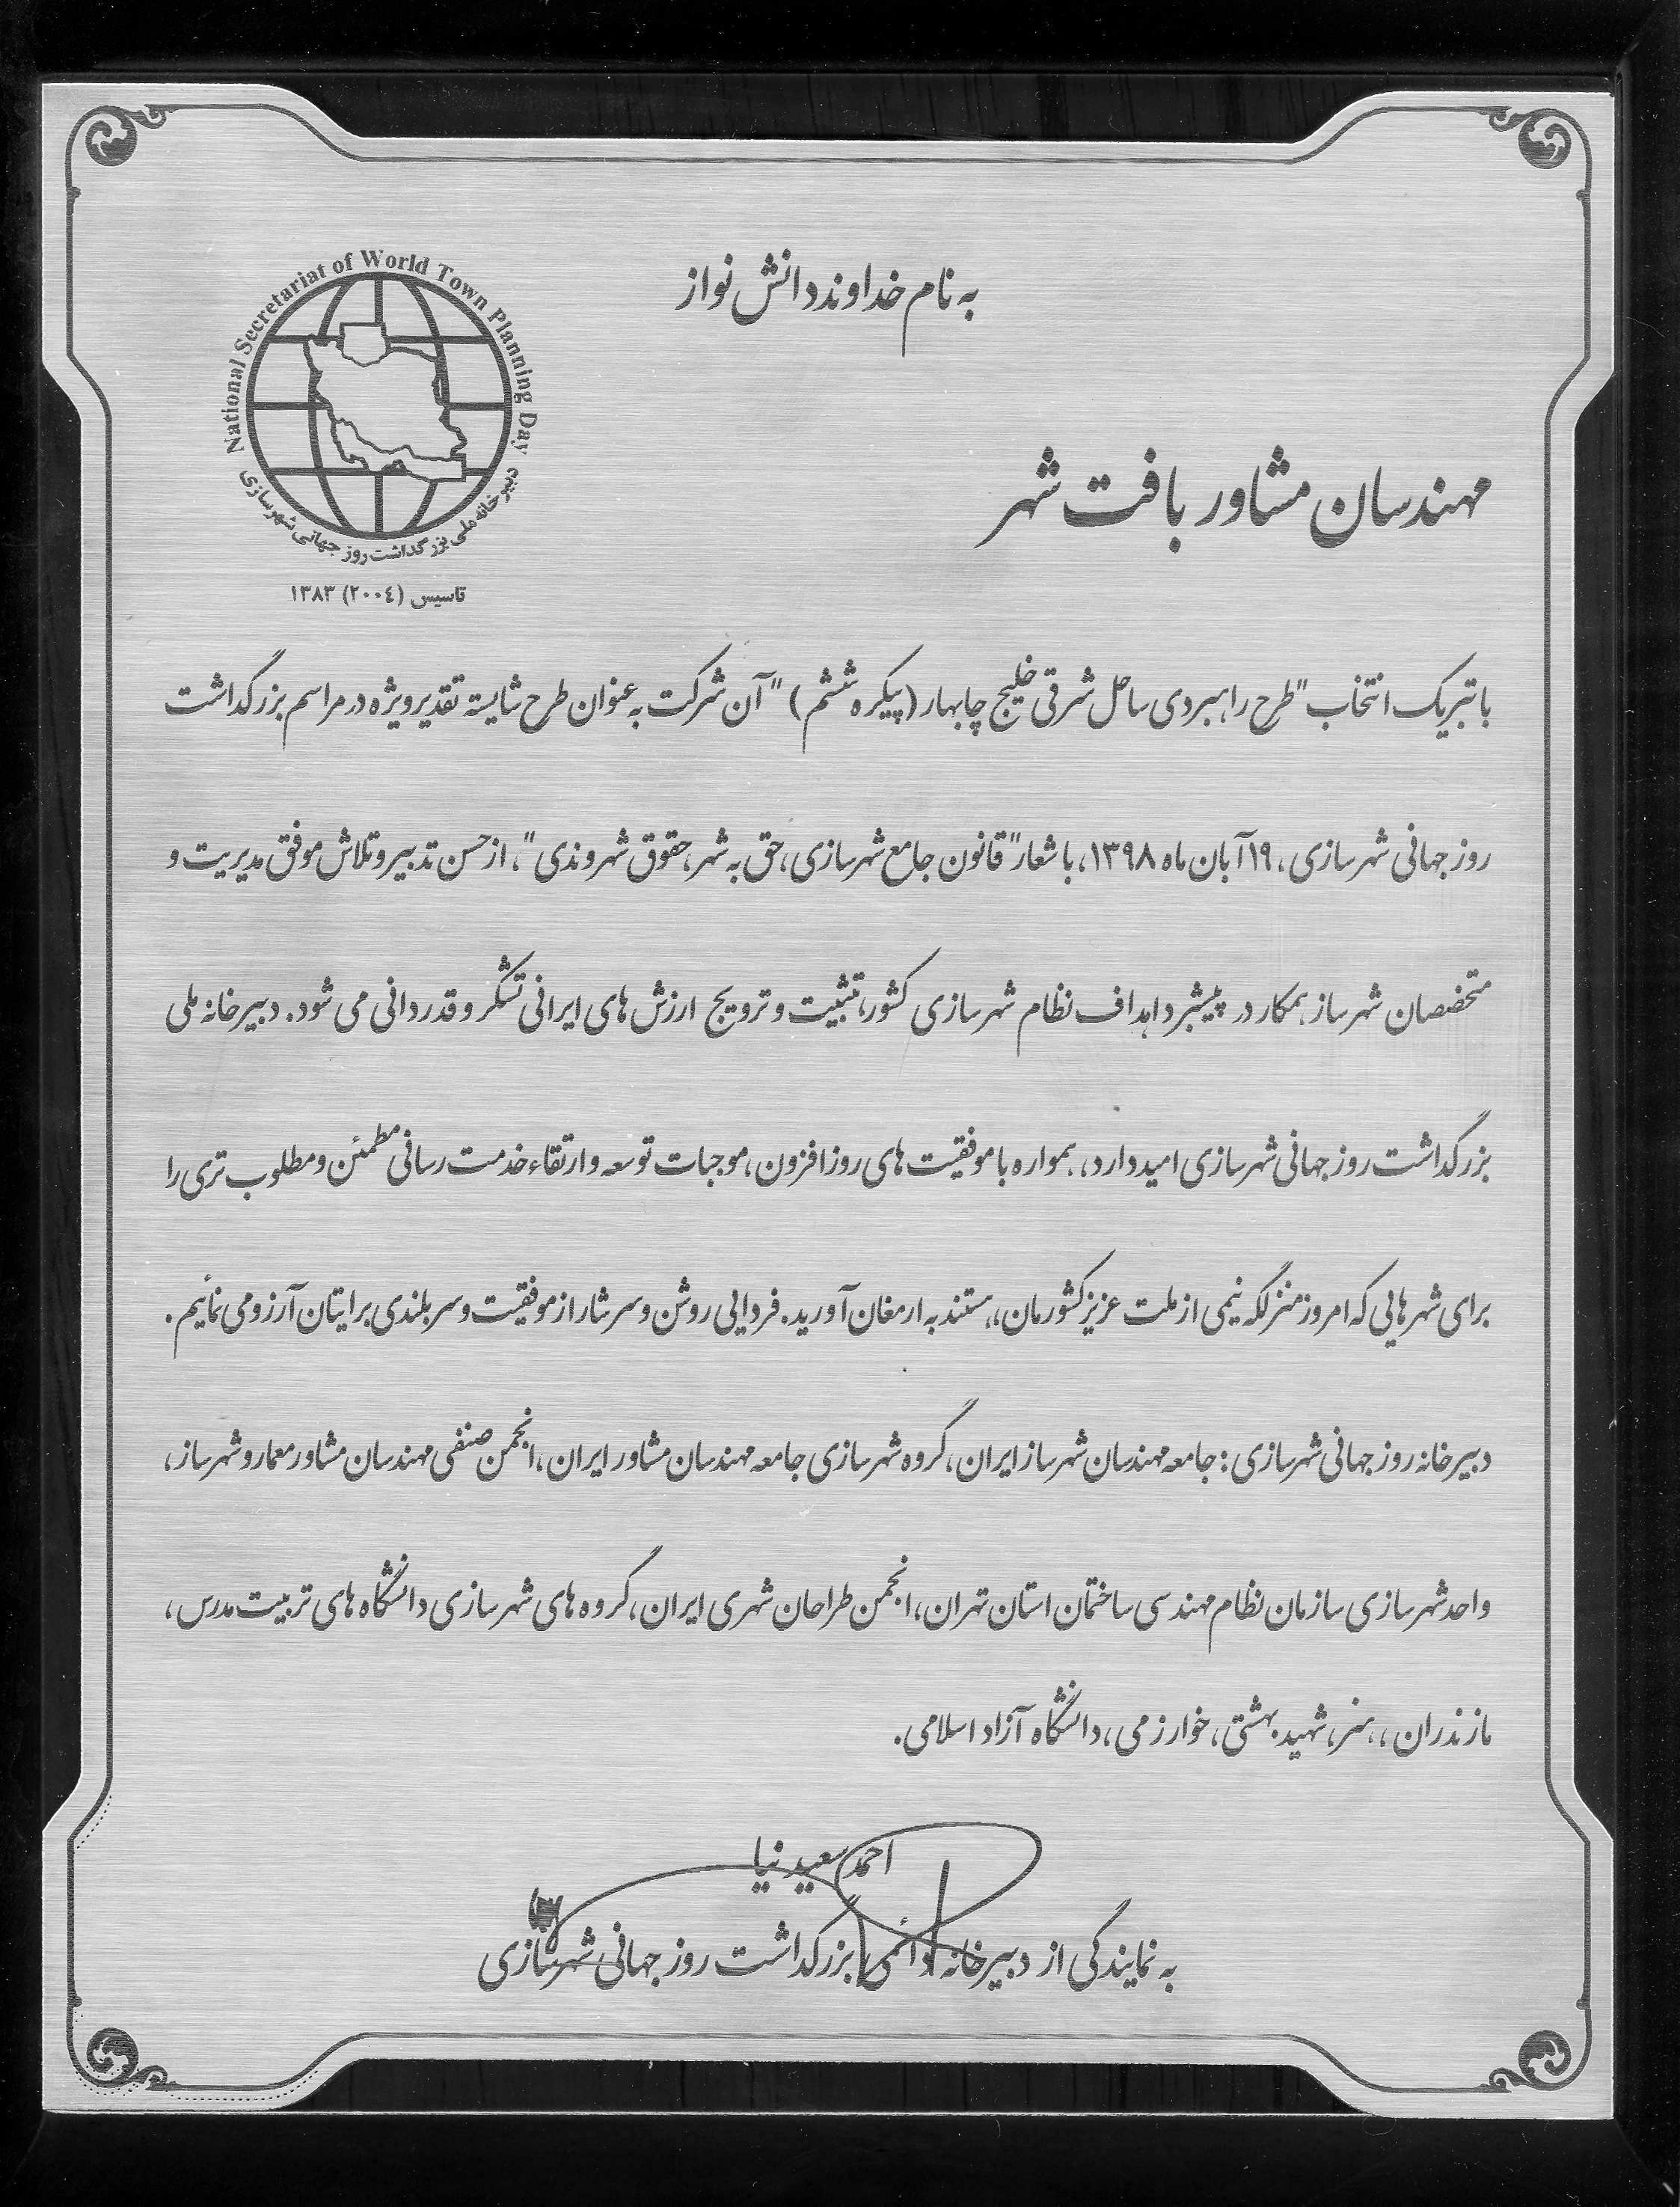 به نام خداوند دانش نواز
National Secretariat of World Town Planning Day
دبیرخانه ملی بزرگداشت روز جهانی شهرسازی
تاسیس (۲۰۰٤) ۱۳۸۳
مهندسان مشاور بافت شهر
با تبریک انتخاب "طرح راهبردی ساحل شرقی خلیج چابهار (پیکره ششم) " آن شرکت به عنوان طرح شایسته تقدیر ویژه در مراسم بزرگداشت
روز جهانی شهرسازی ، ۱۹ آبان ماه ۱۳۹۸، با شعار "قانون جامع شهرسازی ، حق به شهر ، حقوق شهروندی" ، از حسن تدبیر و تلاش موفق مدیریت و
متخصصان شهرساز همکار در پیشبرد اهداف نظام شهرسازی کشور، تثبیت و ترویج ارزش های ایرانی تشکر و قدردانی می شود. دبیرخانه ملی
بزرگداشت روز جهانی شهرسازی امیدوارد، همواره با موفقیت های روزافزون ، موجبات توسعه و ارتقاء خدمت رسانی مطمئن و مطلوب تری را
برای شهرهایی که امروز منزلگه نیمی از ملت عزیز کشورمان، هستند به ارمغان آورید. فردایی روشن و سرشار از موفقیت و سربلندی برایتان آرزو می نمائیم.
دبیرخانه روز جهانی شهرسازی : جامعه مهندسان شهرساز ایران ، گروه شهرسازی جامعه مهندسان مشاور ایران ، انجمن صنفی مهندسان مشاور معمار و شهرساز ،
واحد شهرسازی سازمان نظام مهندسی ساختمان استان تهران ، انجمن طراحان شهری ایران ، گروه های شهرسازی دانشگاه های تربیت مدرس ،
مازندران ، هنر ، شهید بهشتی ، خوارزمی ، دانشگاه آزاد اسلامی.
احمد سعیدنیا
به نمایندگی از دبیرخانه دائمی بزرگداشت روز جهانی شهرسازی